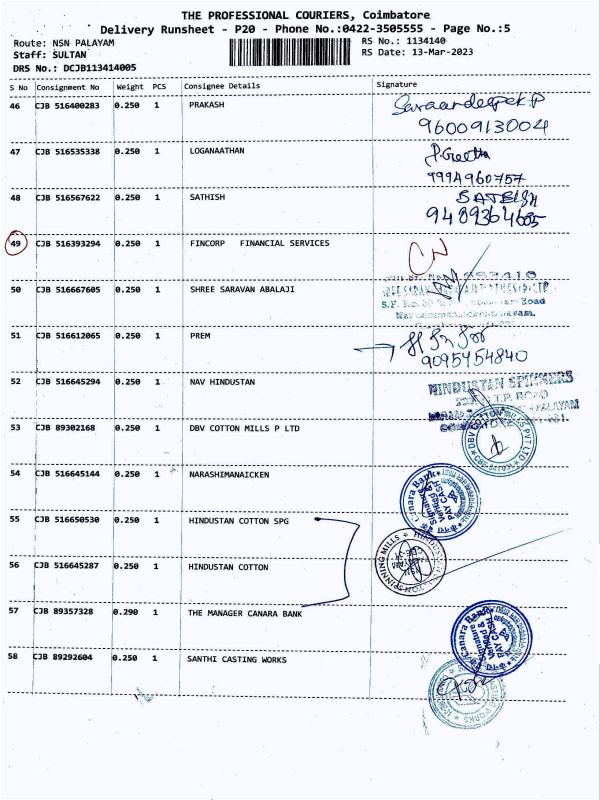 THE PROFESSIONAL COURIERS, Coimbatore
Delivery Runsheet - P20 - Phone No.:0422-3505555 - Page No.:5
Route: NSN PALAYAM
RS No.: 1134140
Staff: SULTAN
RS Date: 13-Mar-2023
DRS No.: DCJB113414005
S No Consignment No Weight PCS Consignee Details Signature
46 CJB 516400283 0.250 1 PRAKASH
9600913004
47 CJB 516535338 0.250 1 LOGANAATHAN
P.Geetha
9994960757
48 CJB 516567622 0.250 1 SATHISH
SATHISH
49 CJB 516393294 0.250 1 FINCORP FINANCIAL SERVICES
CN
50 CJB 516667605 0.250 1 SHREE SARAVAN ABALAJI
Road
51 CJB 516612065 0.250 1 PREM
9095454840
52 CJB 516645294 0.250 1 NAV HINDUSTAN
HINDUSTAN SPINNERS
I.T.P. ROAD
53 CJB 89302168 0.250 1 DBV COTTON MILLS P LTD
DBV COTTON MILLS PVT LTD
54 CJB 516645144 0.250 1 NARASHIMANAICKEN
Canara Bank
PAY CASH
55 CJB 516650530 0.250 1 HINDUSTAN COTTON SPG
56 CJB 516645287 0.250 1 HINDUSTAN COTTON
SPINNING MILLS
57 CJB 89357328 0.290 1 THE MANAGER CANARA BANK
Canara Bank
PAY CASH
58 CJB 89292604 0.250 1 SANTHI CASTING WORKS